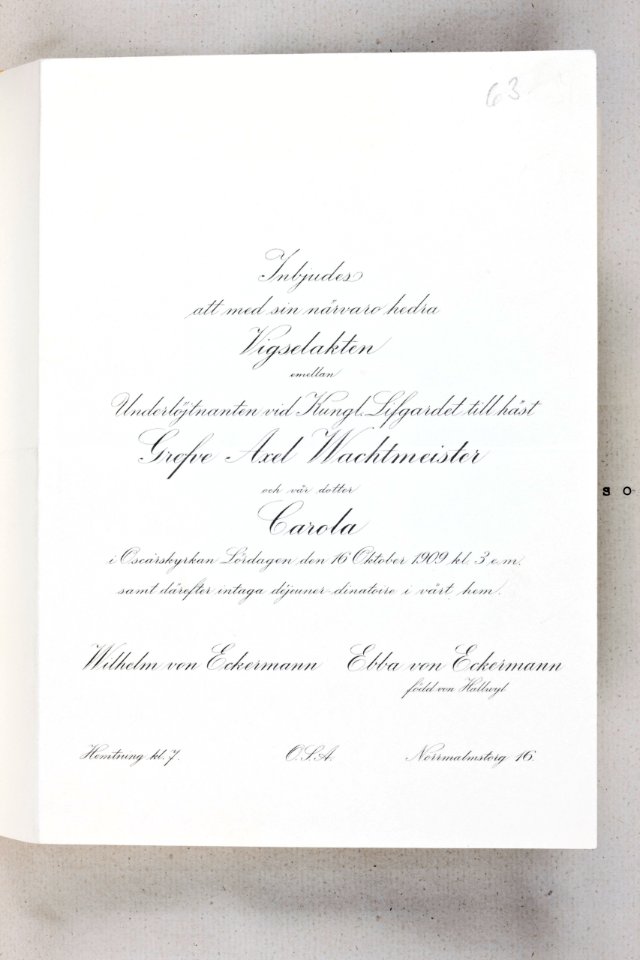 63
Inbjudes
att med sin närvaro hedra
Vigselakten
emellan
Underlöjtnanten vid Kungl. Lifgardet till häst
Grefve Axel Wachtmeister
och vår dotter
Carola
i Oscarskyrkan Lördagen den 16 Oktober 1909 kl. 3 e.m.
samt därefter intaga dejeuner-dinatoire i vårt hem.
Wilhelm von Eckermann Ebba von Eckermann
född von Hallwyl
Hemtning kl. 7. O.S.A. Norrmalmstorg 16.
S O